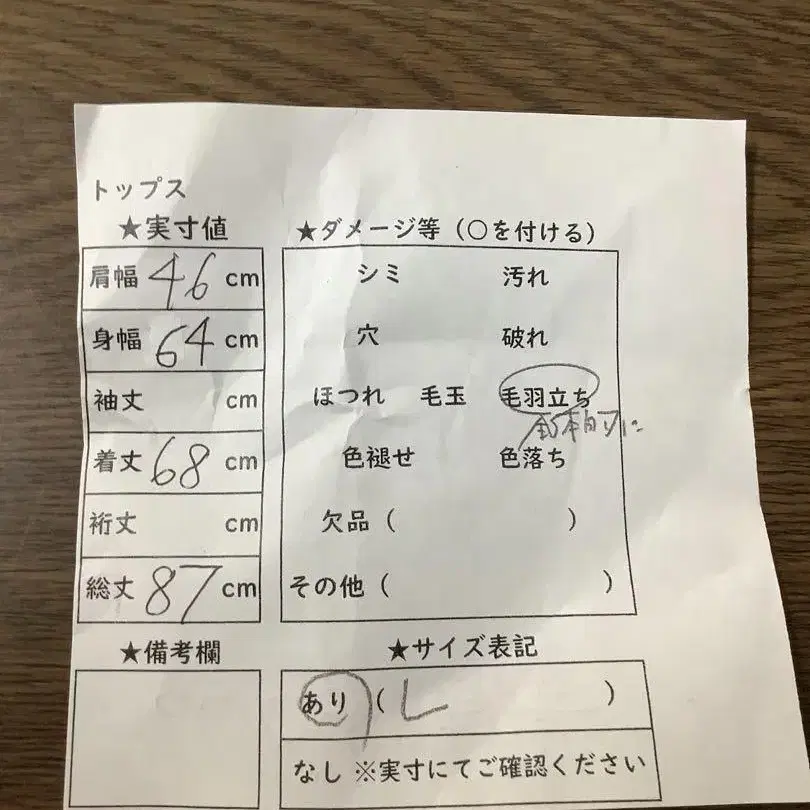 トップス
★実寸値
肩幅 46 cm
身幅 64 cm
袖丈 cm
着丈 68 cm
裄丈 cm
総丈 87 cm
★備考欄
★ダメージ等（○を付ける）
シミ 汚れ
穴 破れ
ほつれ 毛玉 毛羽立ち
全体的に
色褪せ 色落ち
欠品（ ）
その他（ ）
★サイズ表記
あり（ L ）
なし ※実寸にてご確認ください